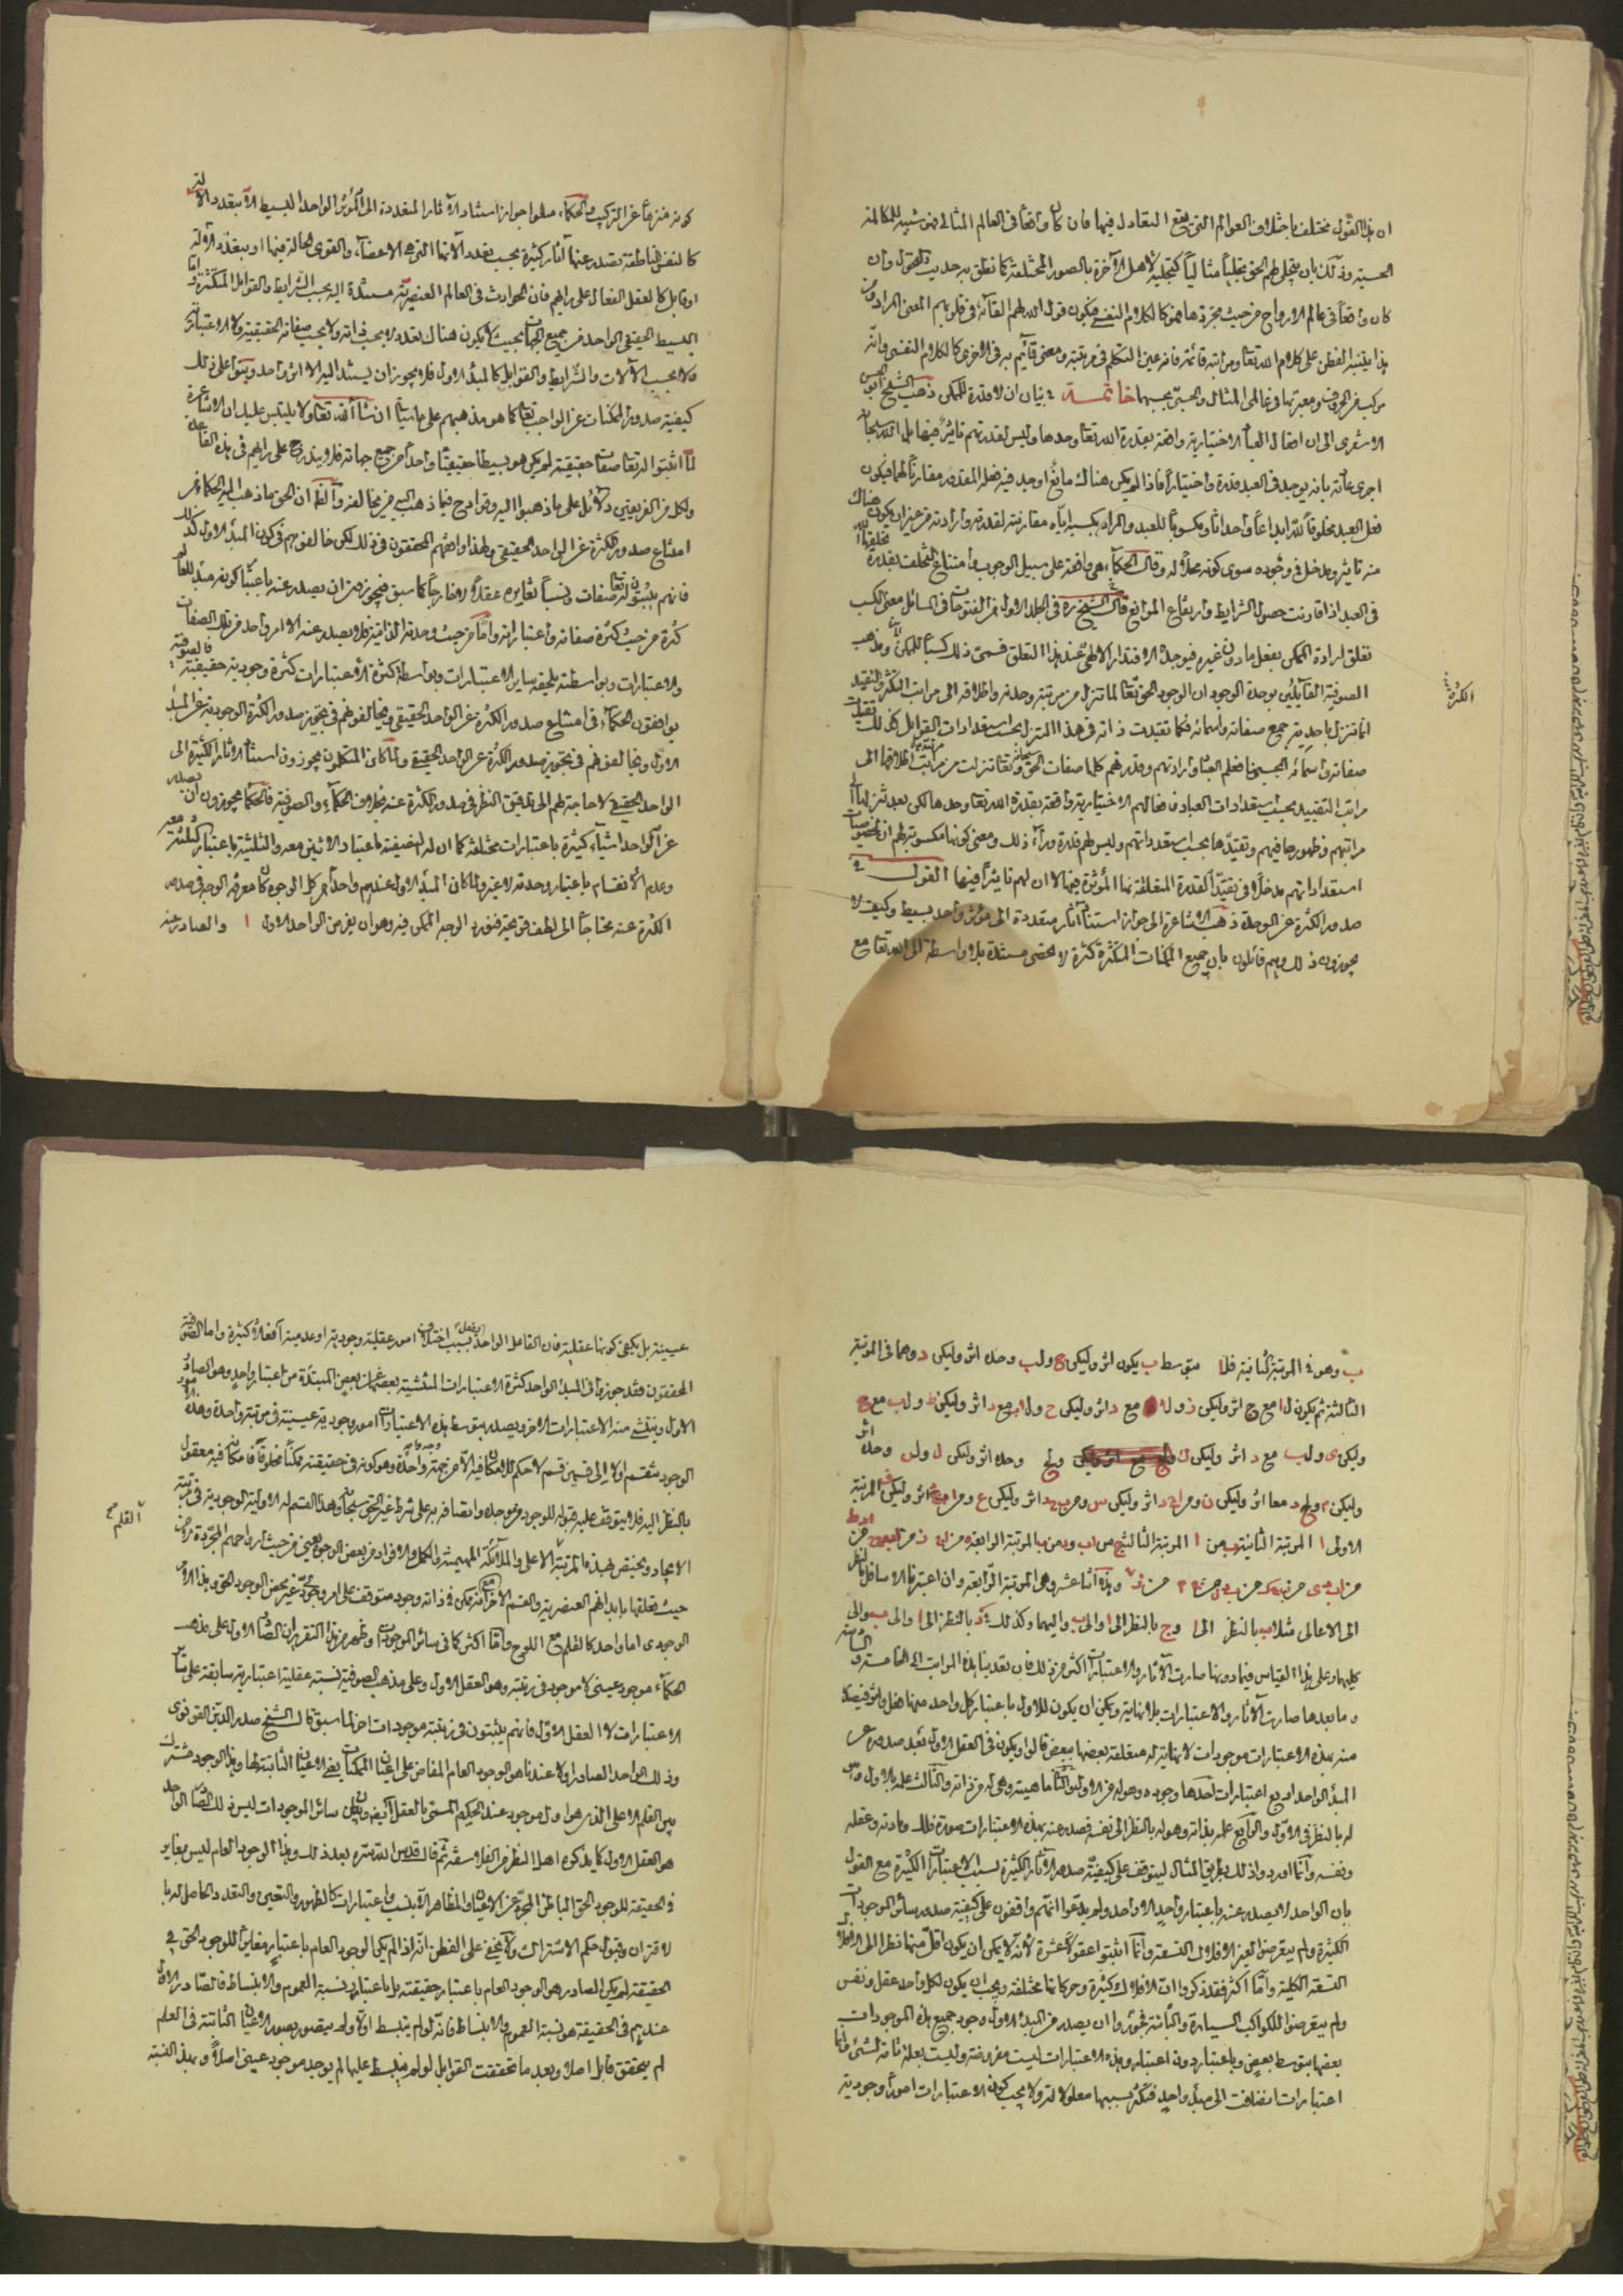 ان هذا القول مختلف باختلاف العوالم التي يقع التقاول فيها فان كان واقعا في العالم المثالي فهو شبيه بالمكالمة
الحسية وذلك بان يتجلى لهم الحق تجليا مثاليا كتجليه لاهل الآخرة بالصور المختلفة كما نطق به حديث التحول وان
كان واقعا في عالم الارواح من حيث تجردها فهو كالكلام النفسي فيكون قول الله لهم القاءه في قلوبهم المعنى المراد ومن
هذا يتنبه الفطن على كلام الله تعالى ومراتبه فانه عين المتكلم في مرتبة ومعنى قائم به في الاخرى كالكلام النفسي وانه
مركب من الحروف ومعبر بها في عالمي المثال والحس بحسبهما خاتمة في بيان ان لا قدرة للممكن ذهب الشيخ ابو الحسن
الاشعري الى ان افعال العباد الاختيارية واقعة بقدرة الله تعالى وحدها وليس لقدرتهم تاثير فيها بل الله سبحانه
اجرى عادته بانه يوجد في العبد قدرة واختيارا فاذا لم يكن هناك مانع اوجد فيه فعله المقدور مقارنا لهما فيكون
فعل العبد مخلوقا لله ابداعا واحداثا ومكسوبا للعبد والمراد بكسبه اياه مقارنته لقدرته وارادته من غير ان يكون هناك
منه تاثير ومدخل في وجوده سوى كونه محلا له وقال الحكماء هي واقعة على سبيل الوجوب وامتناع التخلف بقدرة يخلقها الله
في العبد اذا قارنت حصول الشرايط وارتفاع الموانع قال الشيخ رض في المجلد الاول من الفتوحات في السائل معنى الكسب
تعلق ارادة الممكن بفعل ما دون غيره فيوجده الاقتدار الالهي عند هذا التعلق فسمي ذلك كسبا للممكن ومذهب
الصوفية القائلين بوحدة الوجود ان الوجود الحق تعالى لما تنزل من مرتبة وحدته واطلاقه الى مراتب التكثر والتقيد
انما تنزل باحدية جمع صفاته واسمائه فكما تقيدت ذاته في هذا التنزل بحسب استعدادات القوابل كذلك تقيدت
صفاته واسمائه بحسبها فعلم العباد وارادتهم وقدرتهم كلها صفات الحق سبحانه وتعالى تنزلت من مرتبة اطلاقها الى
مراتب التقييد بحسب استعدادات العباد فافعالهم الاختيارية واقعة بقدرة الله تعالى وحدها لكن بعد تنزلها الى
مراتبهم وظهورها فيهم وتقيدها بحسب استعداداتهم وليس لهم قدرة وراء ذلك ومعنى كونها مكسوبة لهم ان لخصوصيات
استعداداتهم مدخلا في تقيد القدرة المتعلقة بها المؤثرة فيها لا ان لهم تاثيرا فيها القول في
صدور الكثرة عن الوحدة ذهب الاشاعرة الى جواز استناد آثار متعددة الى مؤثر واحد بسيط وكيف لا
يجوزون ذلك وهم قائلون بان جميع الممكنات المتكثرة كثرة لا تحصى مستندة بلا واسطة الى الله تعالى مع
الكثرة
كونه منزها عن التركيب والحكماء منعوا جواز استناد الآثار المتعددة الى المؤثر الواحد البسيط الا بتعدد الآلة
كالنفس الناطقة تصدر عنها آثار كثيرة بحسب تعدد آلاتها التي هي الاعضاء والقوى الحالة فيها او بتعدد شرط
او قابل كالعقل الفعال على رايهم فان الحوادث في العالم العنصري مستندة اليه بحسب الشرايط والقوابل المتكثرة واما
البسيط الحقيقي الواحد من جميع الجهات بحيث لا يكون هناك تعدد لا بحسب ذاته ولا بحسب صفاته الحقيقية ولا الاعتبارية
ولا بحسب الآلات والشرايط والقوابل كالمبدأ الاول فلا يجوز ان يستند اليه الا اثر واحد وبنوا على ذلك
كيفية صدور الممكنات عن الواجب تعالى كما هو مذهبهم على ما سيأتي ان شاء الله تعالى ولا يلتبس عليك ان الاشاعرة
لما اثبتوا له تعالى صفات حقيقية لم يكن هو بسيطا حقيقيا واحدا من جميع جهاته فلا يندرج على رايهم في هذه القاعدة
ولكل من الفريقين دلائل على ما ذهبوا اليه وقوادح فيما ذهب اليه من يخالفه والظاهر ان الحق ما ذهب اليه الحكماء من
امتناع صدور الكثرة عن الواحد الحقيقي ولهذا وافقهم المحققون في ذلك لكن خالفوهم في كون المبدأ الاول كذلك
فانهم يثبتون له تعالى صفات ونسبا تغايره عقلا لا خارجا كما سبق فيجوز ان يصدر عنه باعتبار كونه مبدأ للعالم
كثرة من حيث كثرة صفاته واعتباراته واما من حيث وحدته الذاتية فلا يصدر عنه الا امر واحد من تلك الصفات
والاعتبارات وبواسطته تلحقه سائر الاعتبارات وبواسطة كثرة الاعتبارات كثرة وجودية حقيقية فالصوفية
يوافقون الحكماء في امتناع صدور الكثرة عن الواحد الحقيقي ويخالفونهم في تجويز صدور الكثرة الوجودية عن المبدأ
الاول ويخالفونهم في تجويز صدور الكثرة عن الواحد الحقيقي ولما كان المتكلمون يجوزون استناد الآثار الكثيرة الى
الواحد الحقيقي لا حاجة لهم الى تدقيق النظر في صدور الكثرة عنه بخلاف الحكماء والصوفية فالحكماء يجوزون ان يصدر
عن الواحد اشياء كثيرة باعتبارات مختلفة كما ان له النصفية باعتبار الاثنين معه والثلثية باعتبار الثلثة معه
وعدم الانقسام باعتبار وحدته لا غير ولما كان المبدأ الاول عندهم واحدا من كل الوجوه كان معرفة الوجه في صدور
الكثرة عنه محتاجا الى لطف قريحة فنورد الوجه الممكن فيه وهو ان يفرض الواحد الاول ا والصادر عنه
ب وهو في المرتبة الثانية فلا بتوسط ب يكون اثر وليكن ج ولب وحده اثر وليكن د وهما في المرتبة
الثالثة ثم يكون لا مع ج اثر وليكن ز ولا مع د اثر وليكن ح ولا مع د اثر وليكن ط ولب مع ج
وليكن ي ولب مع د اثر وليكن ك ولج وحده اثر وليكن ل ولد وحده اثر
وليكن م ولج د معا اثر وليكن ن اثر وليكن س اثر وليكن ع اثر وليكن المرتبة
الاولى ا المرتبة الثانية ب من ا المرتبة الثالثة ج من اب د من ب المرتبة الرابعة
وهذه اثنا عشر وهي المرتبة الرابعة وان اعتبرنا الاسافل بالنظر
الى الاعالي مثلا ب بالنظر الى ا وج بالنظر الى ا والى ب واليهما وكذلك في د بالنظر الى ا والى ب والى
كليهما وعلى هذا القياس فيما دونها صارت الآثار والاعتبارات اكثر من ذلك فان تعدينا هذه المراتب الى الخامسة والسادسة
وما بعدها صارت الآثار والاعتبارات بلا نهاية ويمكن ان يكون للاول باعتبار كل واحد منها فعل واثر فيصدر
منه بهذه الاعتبارات موجودات لا نهاية لها متعلقة بعضها ببعض قالوا ويكون في العقل الاول بعد صدوره عن
المبدأ الواحد اربع اعتبارات احدها وجوده وهو له من الاول والثاني ماهيته وهي له من ذاته والثالث علمه بالاول وهو
له بالنظر الى الاول والرابع علمه بذاته وهو له بالنظر الى نفسه فصدر عنه بهذه الاعتبارات صورة فلك ومادته وعقله
ونفسه وانما اوردوا ذلك بطريق المثال ليتوقف على كيفية صدور الآثار الكثيرة بسبب الاعتبارات الكثيرة مع القول
بان الواحد لا يصدر عنه باعتبار واحد الا واحد ولم يدعوا انهم واقفون على كيفية صدور سائر الموجودات
الكثيرة ولم يتعرضوا لغير الافلاك التسعة وانما اثبتوا عقولا عشرة لانه لا يمكن ان يكون اقل منها نظرا الى الافلاك
التسعة الكلية واما اكثر فقد ذكروا ان الافلاك كثيرة وحركاتها مختلفة ويجب ان يكون لكل واحد عقل ونفس
ولم يتعرضوا للكواكب السيارة والثابتة فجوزوا ان يصدر من المبدأ الاول وجود جميع هذه الموجودات
بعضها بتوسط بعض وباعتبار دون اعتبار وهذه الاعتبارات ليست مفروضة وليست بعلة تامة لشيء وانما
اعتبارات انضافت الى مبدأ واحد فتكثر بسببها معلولاته ولا يجب كون الاعتبارات امورا وجودية
عينية بل يكفي كونها عقلية فان الفاعل الواحد يفعل بسبب اختلاف امور عقلية وجودية او عدمية افعالا كثيرة واما الصوفية
المحققون فقد جوزوا في المبدأ الواحد كثرة الاعتبارات المنتشية بعضها عن بعض المبتدئة من اعتبار واحد وهو الصادر
الاول وينتشي منه الاعتبارات الاخر ويصدر بتوسط هذه الاعتبارات امور وجودية عينية في مرتبة واحدة وهذه الامور
الوجودية تنقسم اولا الى قسمين قسم لا حكم للامكان فيه الا من جهة واحدة وهو كونه في حقيقته ممكنا مخلوقا فامكانه فيه معقول
بالنظر اليه فلا يتوقف عليه قبوله للوجود من موجده واتصافه به على شرط غير الحق سبحانه وهذا القسم له الاولية الوجودية في مرتبة
الايجاد ويختص بهذه المرتبة الاعلى والملائكة المهيمة والكمل والافراد من بعض الوجوه يعني من حيث ارواحهم المجردة لا من
حيث تعلقها بابدانهم العنصرية والقسم الآخر مع انه ممكن في ذاته وجوده متوقف على امر وجودي غير محض الوجود الحق وهذا الامر
الوجودي اما واحد كالقلم مع اللوح واما اكثر كما في سائر الموجودات وظهر من هذا التقرير ان الصادر الاول على مذهب
الحكماء موجود عيني لا موجود في رتبته وهو العقل الاول وعلى مذهب الصوفية نسبة عقلية اعتبارية سابقة على سائر
الاعتبارات لا العقل الاول فانهم يثبتون في رتبته موجودات اخر كما سبق قال الشيخ صدر الدين القونوي
وذلك الواحد الصادر اولا عندنا هو الوجود العام المفاض على اعيان الممكنات يعني الاعيان الثابتة لها وهذا الوجود مشترك
بين القلم الاعلى الذي هو اول موجود عند الحكيم المسمى بالعقل الاول ايضا وبين سائر الموجودات ليس ذلك الصادر الواحد
هو العقل الاول كما يذكره اهل النظر من الفلاسفة ثم قال قدس الله سره بعد ذلك وهذا الوجود العام ليس بمغاير
في الحقيقة للوجود الحق الباطن المجرد عن الاعيان والمظاهر الا بنسب واعتبارات كالظهور والتعين والتعدد الحاصل له با
لاقتران وقبول حكم الاشتراك ولا يخفى على الفطن انه اذا لم يكن الوجود العام باعتبار مغايرا للوجود الحق في
الحقيقة لم يكن الصادر هو الوجود العام باعتبار حقيقته بل باعتبار نسبة العموم والانبساط فالصادر الاول
عندهم في الحقيقة هو نسبة العموم والانبساط فانه لو لم ينبسط اولا ولم يتصور بصور الاعيان الثابتة في العلم
لم يتحقق قابل اصلا وبعد ما تحققت القوابل لو لم ينبسط عليها لم يوجد موجود عيني اصلا وبهذه النسبة
القلم